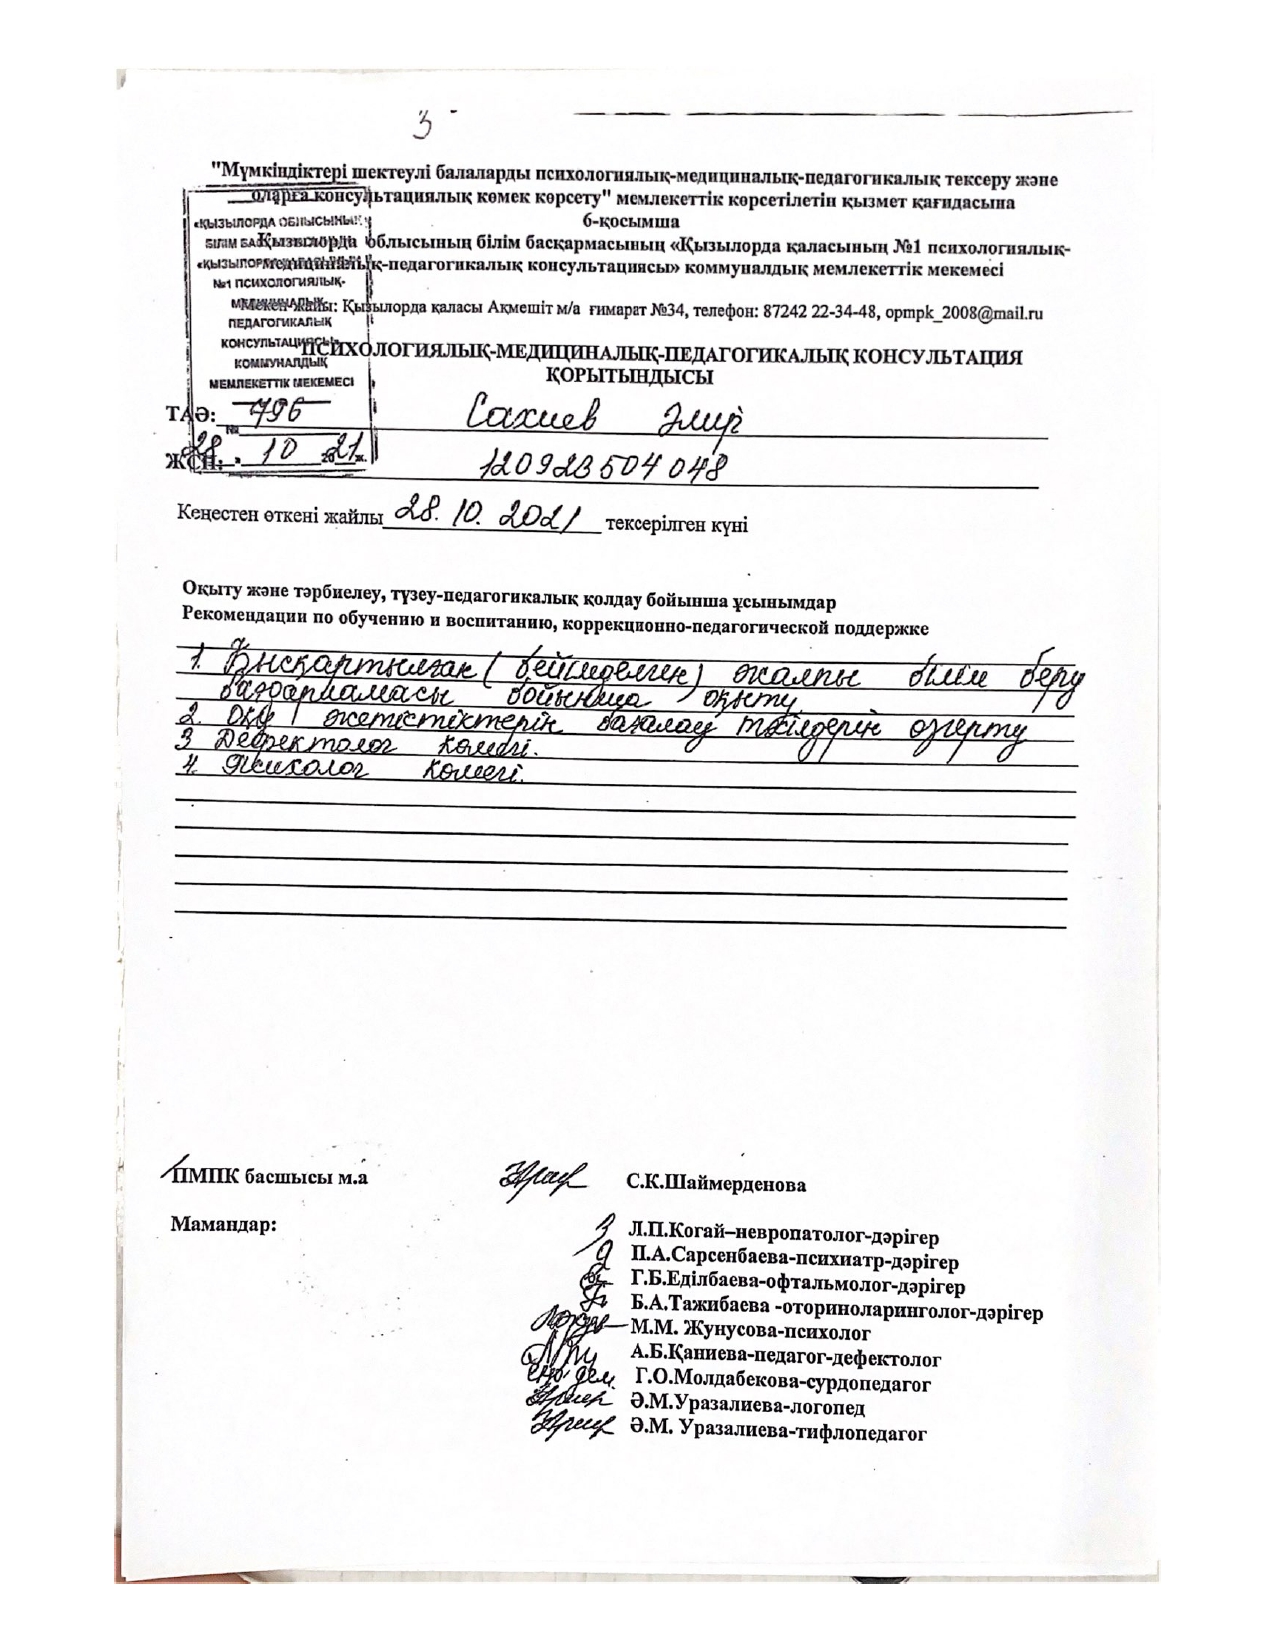 3
"Мүмкіндіктері шектеулі балаларды психологиялық-медициналық-педагогикалық тексеру және
оларға консультациялық көмек көрсету" мемлекеттік көрсетілетін қызмет қағидасына
6-қосымша
Қызылорда облысының білім басқармасының «Қызылорда қаласының №1 психологиялық-
медициналық-педагогикалық консультациясы» коммуналдық мемлекеттік мекемесі
Мекен-жайы: Қызылорда қаласы Ақмешіт м/а ғимарат №34, телефон: 87242 22-34-48, opmpk_2008@mail.ru
«ҚЫЗЫЛОРДА ОБЛЫСЫНЫҢ
БІЛІМ
«ҚЫЗЫЛОРДА
№1 ПСИХОЛОГИЯЛЫҚ-
МЕДИЦИНАЛЫҚ-
ПЕДАГОГИКАЛЫҚ
КОНСУЛЬТАЦИЯСЫ»
КОММУНАЛДЫҚ
МЕМЛЕКЕТТІК МЕКЕМЕСІ
№ 796
28 . 10 2021 ж.
ПСИХОЛОГИЯЛЫҚ-МЕДИЦИНАЛЫҚ-ПЕДАГОГИКАЛЫҚ КОНСУЛЬТАЦИЯ
ҚОРЫТЫНДЫСЫ
ТАӘ: Сахиев Әмір
ЖСН: 120923504048
Кеңестен өткені жайлы 28. 10. 2021 тексерілген күні
Оқыту және тәрбиелеу, түзеу-педагогикалық қолдау бойынша ұсынымдар
Рекомендации по обучению и воспитанию, коррекционно-педагогической поддержке
1. Қысқартылған (бейімделген) жалпы білім беру
бағдарламасы бойынша оқыту.
2. Оқу жетістіктерін бағалау тәсілдерін өзгерту
3 Дефектолог көмегі.
4. Психолог көмегі.
ПМПК басшысы м.а С.К.Шаймерденова
Мамандар: Л.П.Когай–невропатолог-дәрігер
П.А.Сарсенбаева-психиатр-дәрігер
Г.Б.Еділбаева-офтальмолог-дәрігер
Б.А.Тажибаева -оториноларинголог-дәрігер
М.М. Жунусова-психолог
А.Б.Қаниева-педагог-дефектолог
Г.О.Молдабекова-сурдопедагог
Ә.М.Уразалиева-логопед
Ә.М. Уразалиева-тифлопедагог